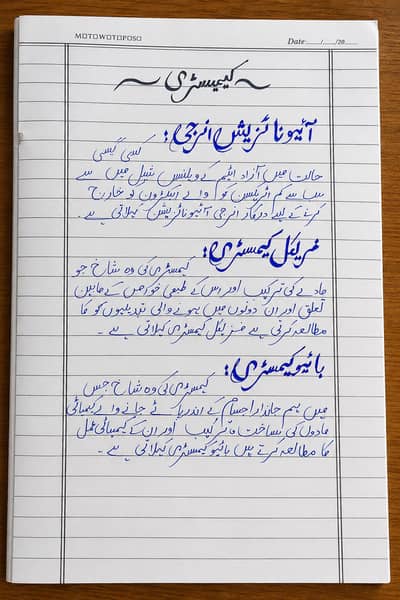 MOTOWOTOFOSO
Date / /20
~ کیمسٹری ~
آئیونائزیشن انرجی:
کسی گیسی
حالت میں آزاد ایٹم کے ویلنس شیل میں سے
سب سے کم اٹریکس کو والے الیکٹرون کو خارج
کرنے کے لیے درکار انرجی آئیونائزیشن کہلاتی ہے۔
فزیکل کیمسٹری:
کیمسٹری کی وہ شاخ جو
مادے کی ترکیب اور اس کے طبعی خواص کے مابین
تعلق اور ان دونوں میں ہونے والی تبدیلیوں کو کا
مطالعہ کرتی ہے فزیکل کیمسٹری کہلاتی ہے۔
بائیو کیمسٹری:
کیمسٹری کی وہ شاخ جس
میں ہم جاندار اجسام کے اندر پائے جانے والے کیمیائی
مادوں کی ساخت ترکیب اور ان کے کیمیائی عمل
کا مطالعہ کرتے ہیں بائیو کیمسٹری کہلاتی ہے۔